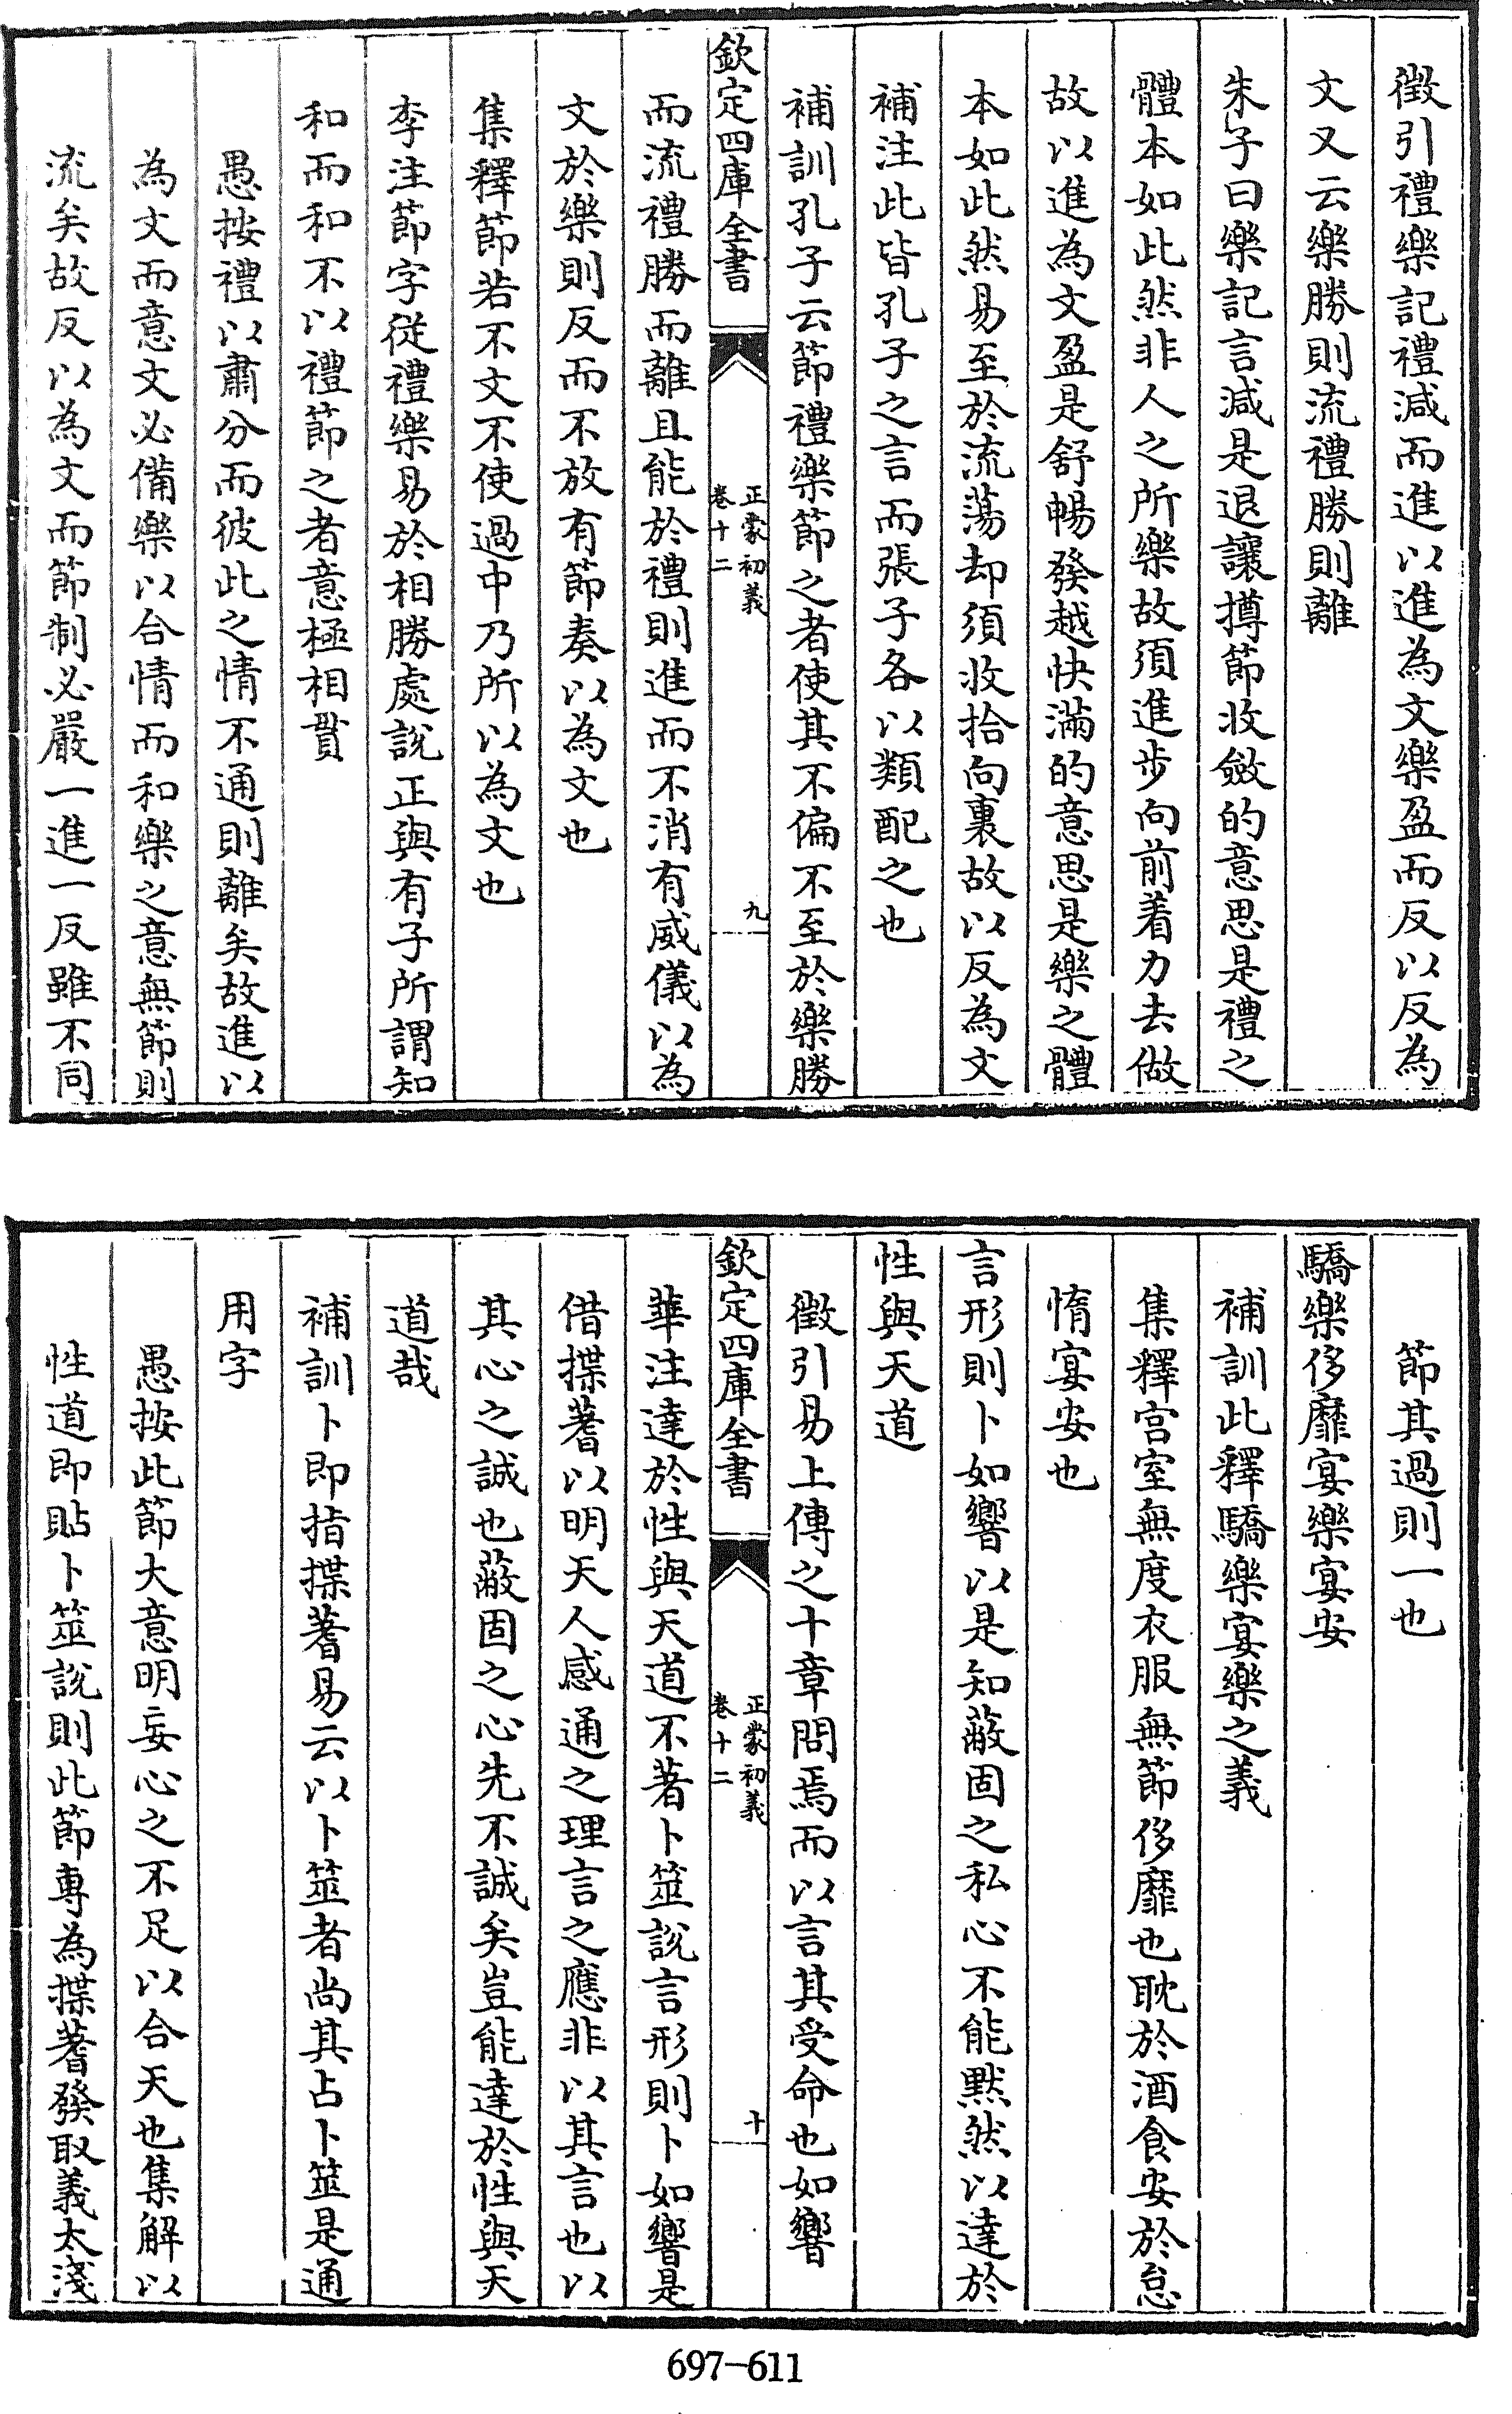 徵引禮樂記禮減而進以進為文樂盈而反以反為
文又云樂勝則流禮勝則離
朱子曰樂記言減是退讓撙節收斂的意思是禮之
體本如此然非人之所樂故須進步向前着力去做
故以進為文盈是舒暢發越快滿的意思是樂之體
本如此然易至於流蕩却須收拾向裏故以反為文
補注此皆孔子之言而張子各以類配之也
補訓孔子云節禮樂節之者使其不偏不至於樂勝
欽定四庫全書
正蒙初義
卷十二
九
而流禮勝而離且能於禮則進而不消有威儀以為
文於樂則反而不放有節奏以為文也
集釋節若不文不使過中乃所以為文也
李注節字從禮樂易於相勝處說正與有子所謂知
和而和不以禮節之者意極相貫
愚按禮以肅分而彼此之情不通則離矣故進以
為文而意文必備樂以合情而和樂之意無節則
流矣故反以為文而節制必嚴一進一反雖不同
節其過則一也
驕樂侈靡宴樂宴安
補訓此釋驕樂宴樂之義
集釋宫室無度衣服無節侈靡也耽於酒食安於怠
惰宴安也
言形則卜如響以是知蔽固之私心不能黙然以達於
性與天道
徵引易上傳之十章問焉而以言其受命也如響
欽定四庫全書
正蒙初義
卷十二
十
華注達於性與天道不著卜筮說言形則卜如響是
借揲蓍以明天人感通之理言之應非以其言也以
其心之誠也蔽固之心先不誠矣豈能達於性與天
道哉
補訓卜即指揲蓍易云以卜筮者尚其占卜筮是通
用字
愚按此節大意明妄心之不足以合天也集解以
性道即貼卜筮說則此節專為揲蓍發取義太淺
697-611